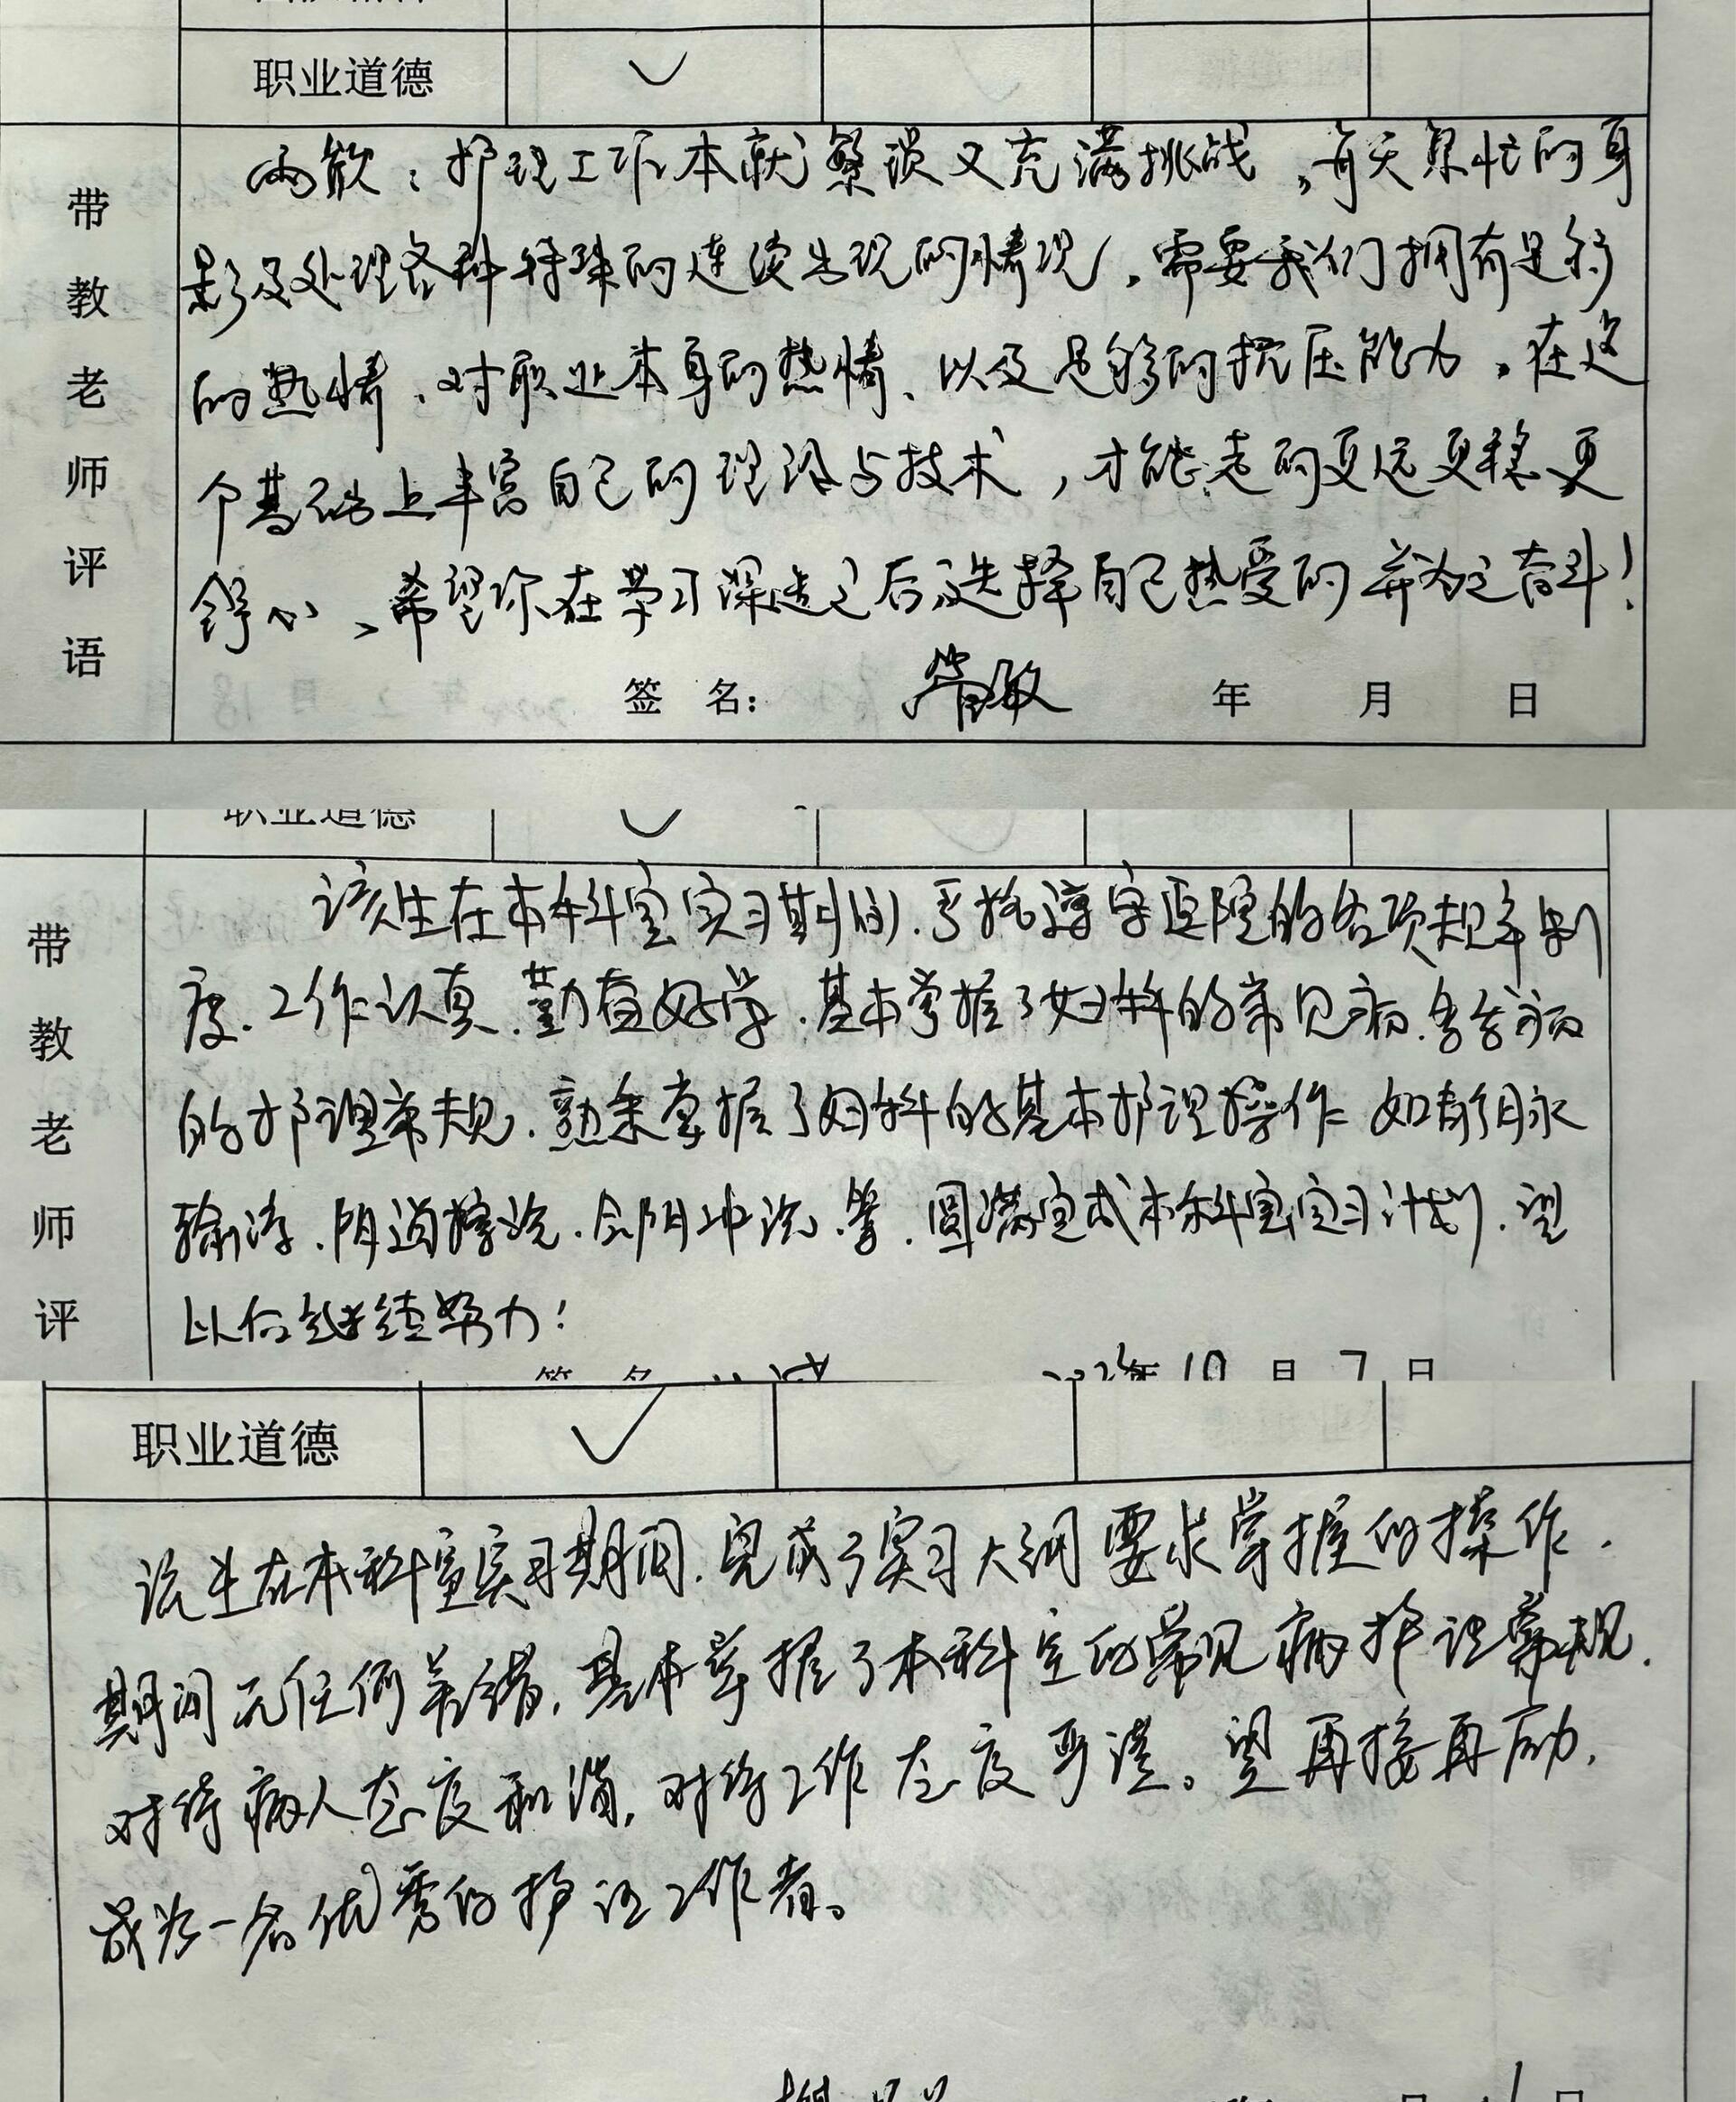 职业道德
带教老师评语
护理工作本就繁琐又充满挑战，每天忙的身
影及处理各种特殊的连续出现的情况，需要我们拥有足够
的热情、对职业本身的热情、以及足够的抗压能力，在这
个基础上丰富自己的理论与技术，才能走的更远更稳更
舒心、希望你在学习深造之后选择自己热爱的并为之奋斗！
签 名： 年 月 日
职业道德
带教老师评
该生在本科室实习期间.严格遵守医院的各项规章制
度.工作认真.勤奋好学.基本掌握了妇科的常见病.多发病
的护理常规.熟练掌握了妇科的基本护理操作 如静脉
输液.阴道擦洗.会阴冲洗.等.圆满完成本科室实习计划.望
以后继续努力！
签 名 年 10 月 7 日
职业道德
该生在本科室实习期间.完成了实习大纲要求掌握的操作.
期间无任何差错，基本掌握了本科室的常见病护理常规.
对待病人态度和蔼，对待工作态度严谨。望再接再励，
成为一名优秀的护理工作者。
月 日